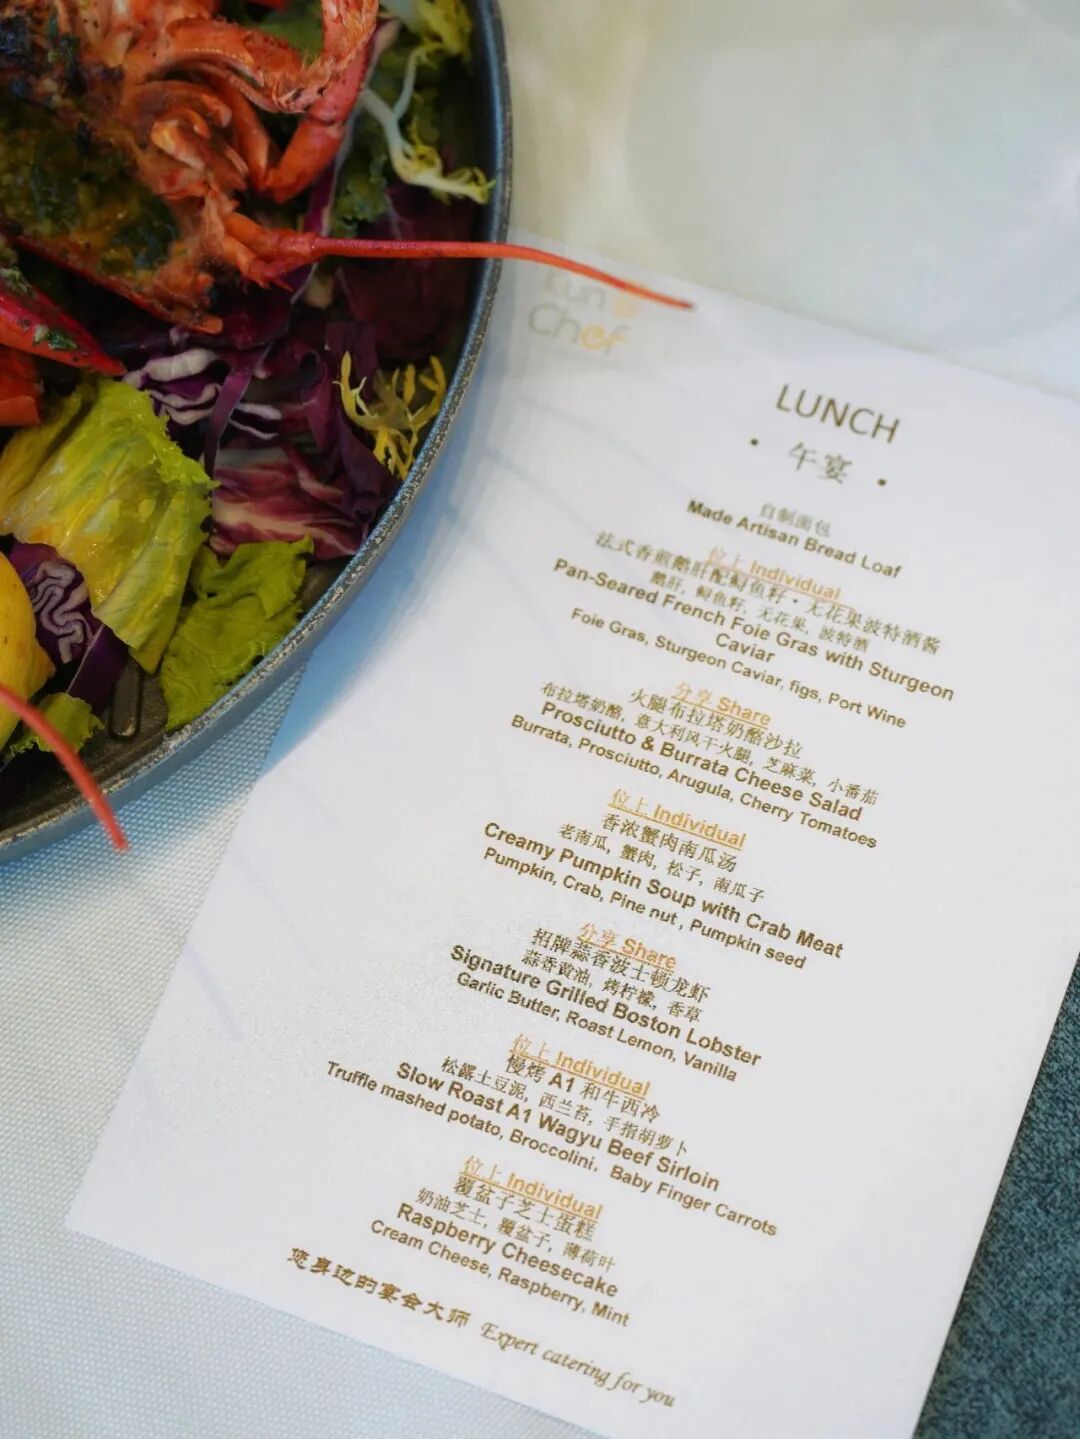 Chef
LUNCH
• 午宴 •
自制面包
Made Artisan Bread Loaf
位上 Individual
法式香煎鹅肝配鲟鱼籽·无花果波特酒酱
鹅肝, 鲟鱼籽, 无花果, 波特酒
Pan-Seared French Foie Gras with Sturgeon
Caviar
Foie Gras, Sturgeon Caviar, figs, Port Wine
分享 Share
火腿布拉塔奶酪沙拉
布拉塔奶酪, 意大利风干火腿, 芝麻菜, 小番茄
Prosciutto & Burrata Cheese Salad
Burrata, Prosciutto, Arugula, Cherry Tomatoes
位上 Individual
香浓蟹肉南瓜汤
老南瓜, 蟹肉, 松子, 南瓜子
Creamy Pumpkin Soup with Crab Meat
Pumpkin, Crab, Pine nut , Pumpkin seed
分享 Share
招牌蒜香波士顿龙虾
蒜香黄油, 烤柠檬, 香草
Signature Grilled Boston Lobster
Garlic Butter, Roast Lemon, Vanilla
位上 Individual
慢烤 A1 和牛西冷
松露土豆泥, 西兰苔, 手指胡萝卜
Slow Roast A1 Wagyu Beef Sirloin
Truffle mashed potato, Broccolini, Baby Finger Carrots
位上 Individual
覆盆子芝士蛋糕
奶油芝士, 覆盆子, 薄荷叶
Raspberry Cheesecake
Cream Cheese, Raspberry, Mint
您身边的宴会大师 Expert catering for you